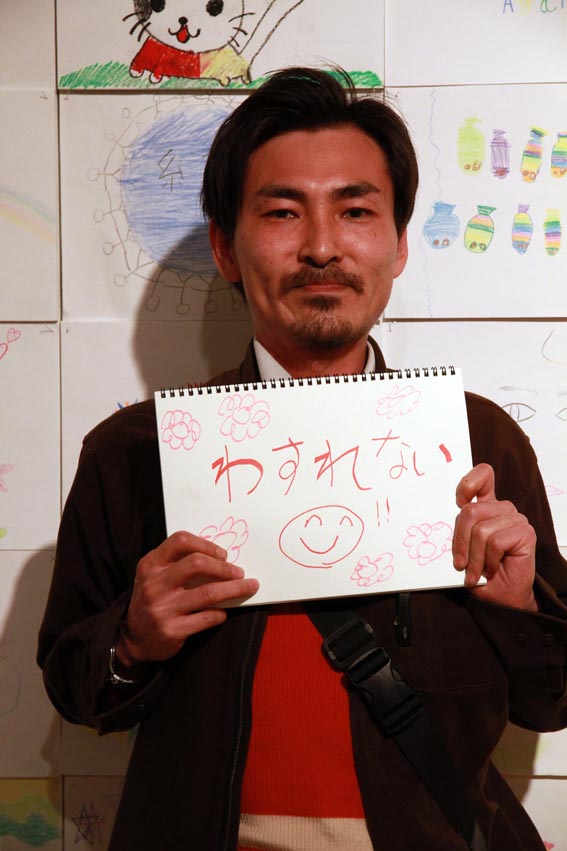 わすれない!!
糸